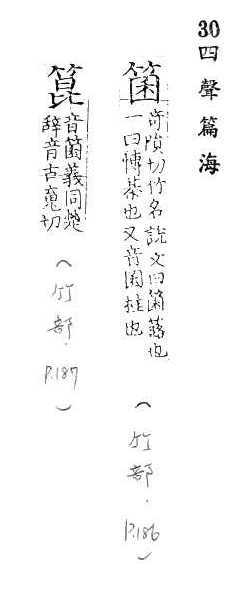 30 四聲篇海
箘
奇隕切竹名說文曰箘簬也
一曰博棊也又音囷桂也
(竹部.P.186)
箟
音箘義同楚
辭音古魂切
(竹部.P.187)